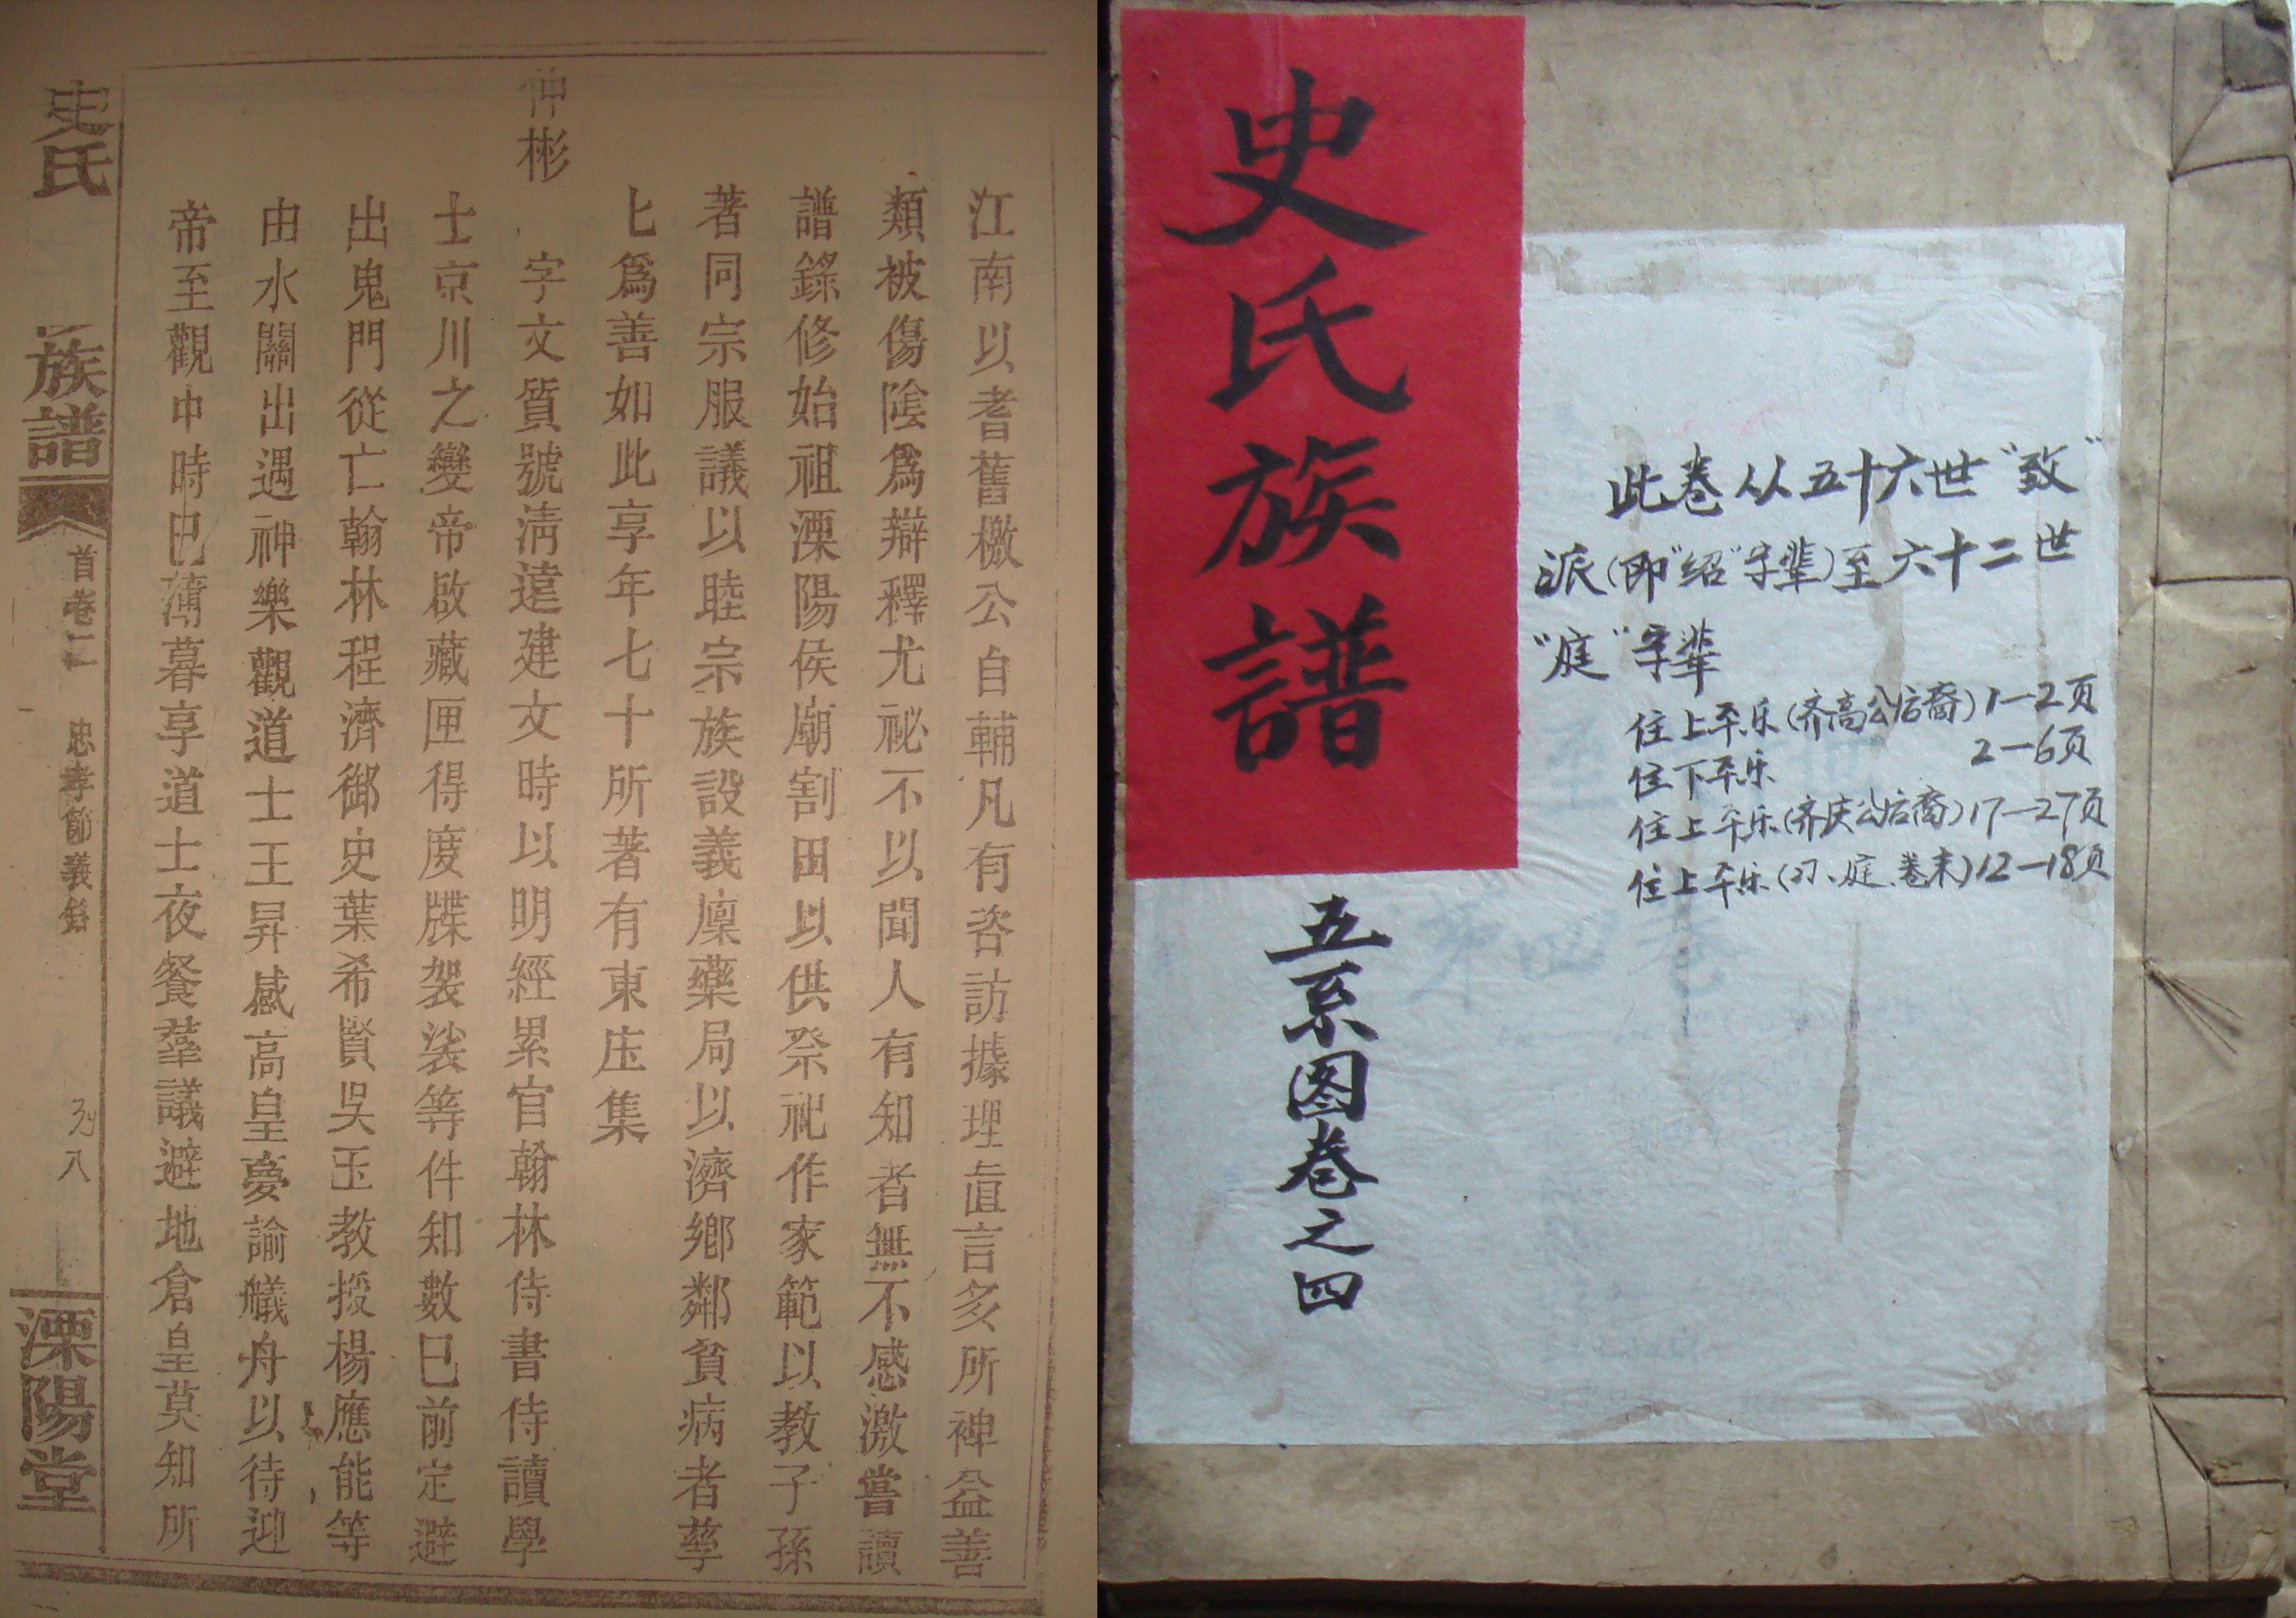 江南以耆舊檄公自輔凡有咨訪據理直言多所裨益善
類被傷陰爲辯釋尤祕不以聞人有知者無不感激嘗讀
譜錄修始祖溧陽侯廟割田以供祭祀作家範以教子孫
著同宗服議以睦宗族設義廩藥局以濟鄉鄰貧病者孳
匕爲善如此享年七十所著有東庄集
仲彬
字文質號清遠建文時以明經累官翰林侍書侍讀學
士京川之變帝啟藏匣得度牒袈裟等件知數已前定避
出鬼門從亡翰林程濟御史葉希賢吳玉教授楊應能等
由水關出遇神樂觀道士王昇感高皇夢諭艤舟以待迎
帝至觀中時已薄暮享道士夜餐羣議避地倉皇莫知所
史氏
族譜
首卷二
忠孝節義錄
八
溧陽堂
史氏族譜
五系图卷之四
此卷从五十六世“致”
派(即“绍”字辈)至六十二世
“庭”字辈
住上平乐(齐高公后裔)1—2页
住下平乐 2—6页
住上平乐(齐庆公后裔)17—27页
住上平乐(习、庭、卷末)12—18页
第四卷